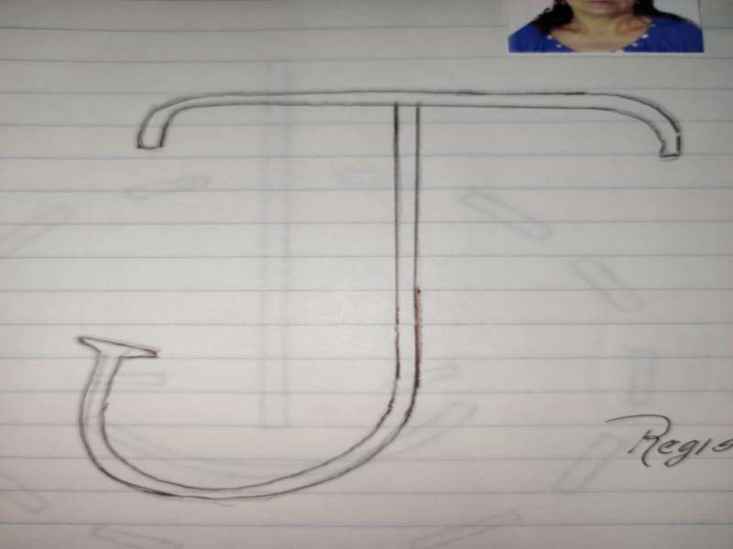 J
Regis